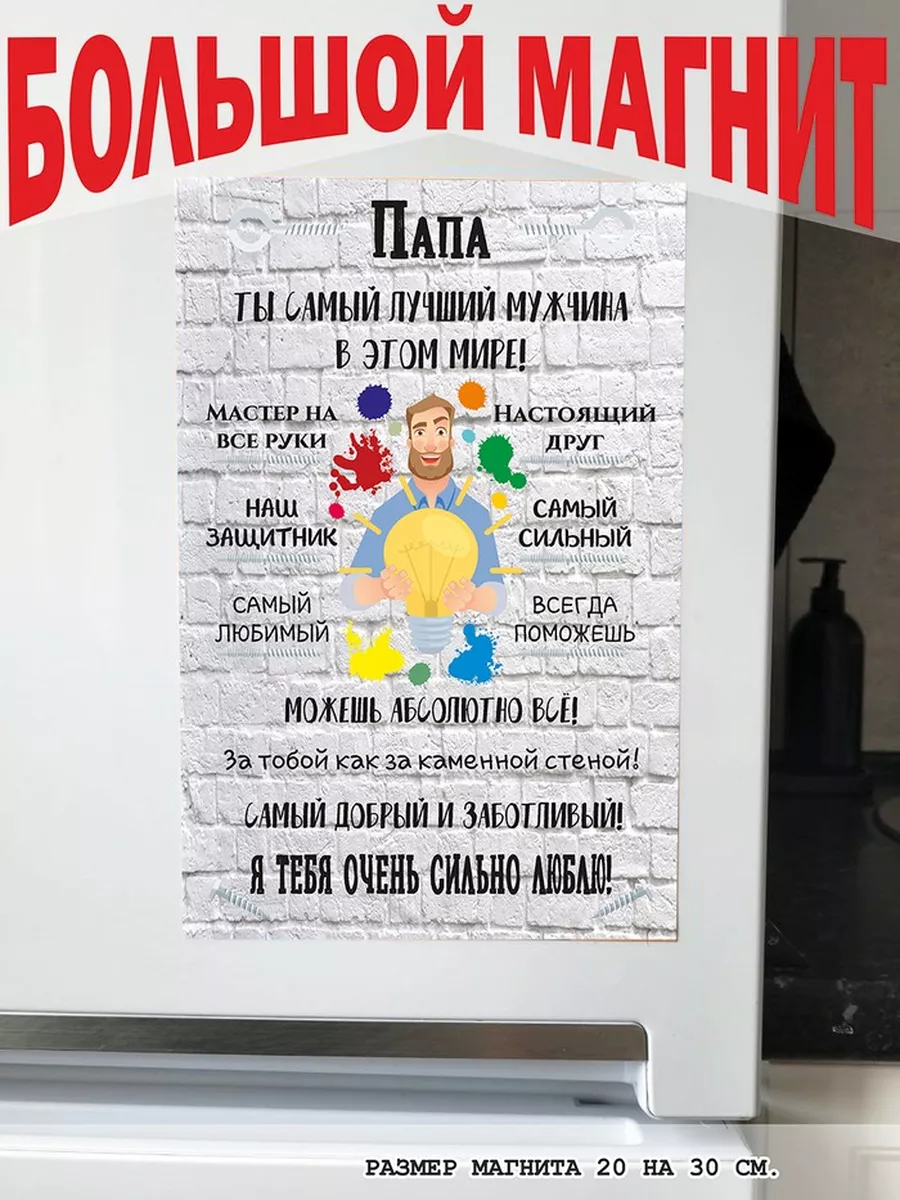 БОЛЬШОЙ МАГНИТ
ПАПА
ТЫ САМЫЙ ЛУЧШИЙ МУЖЧИНА
В ЭТОМ МИРЕ!
МАСТЕР НА
ВСЕ РУКИ
НАСТОЯЩИЙ
ДРУГ
НАШ
ЗАЩИТНИК
САМЫЙ
СИЛЬНЫЙ
САМЫЙ
ЛЮБИМЫЙ
ВСЕГДА
ПОМОЖЕШЬ
МОЖЕШЬ АБСОЛЮТНО ВСЁ!
За тобой как за каменной стеной!
САМЫЙ ДОБРЫЙ И ЗАБОТЛИВЫЙ!
Я ТЕБЯ ОЧЕНЬ СИЛЬНО ЛЮБЛЮ!
РАЗМЕР МАГНИТА 20 НА 30 СМ.